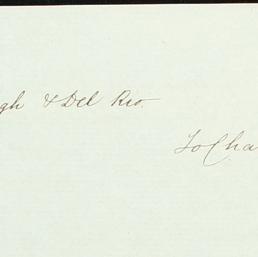 gh & Del Rio.
To Cha